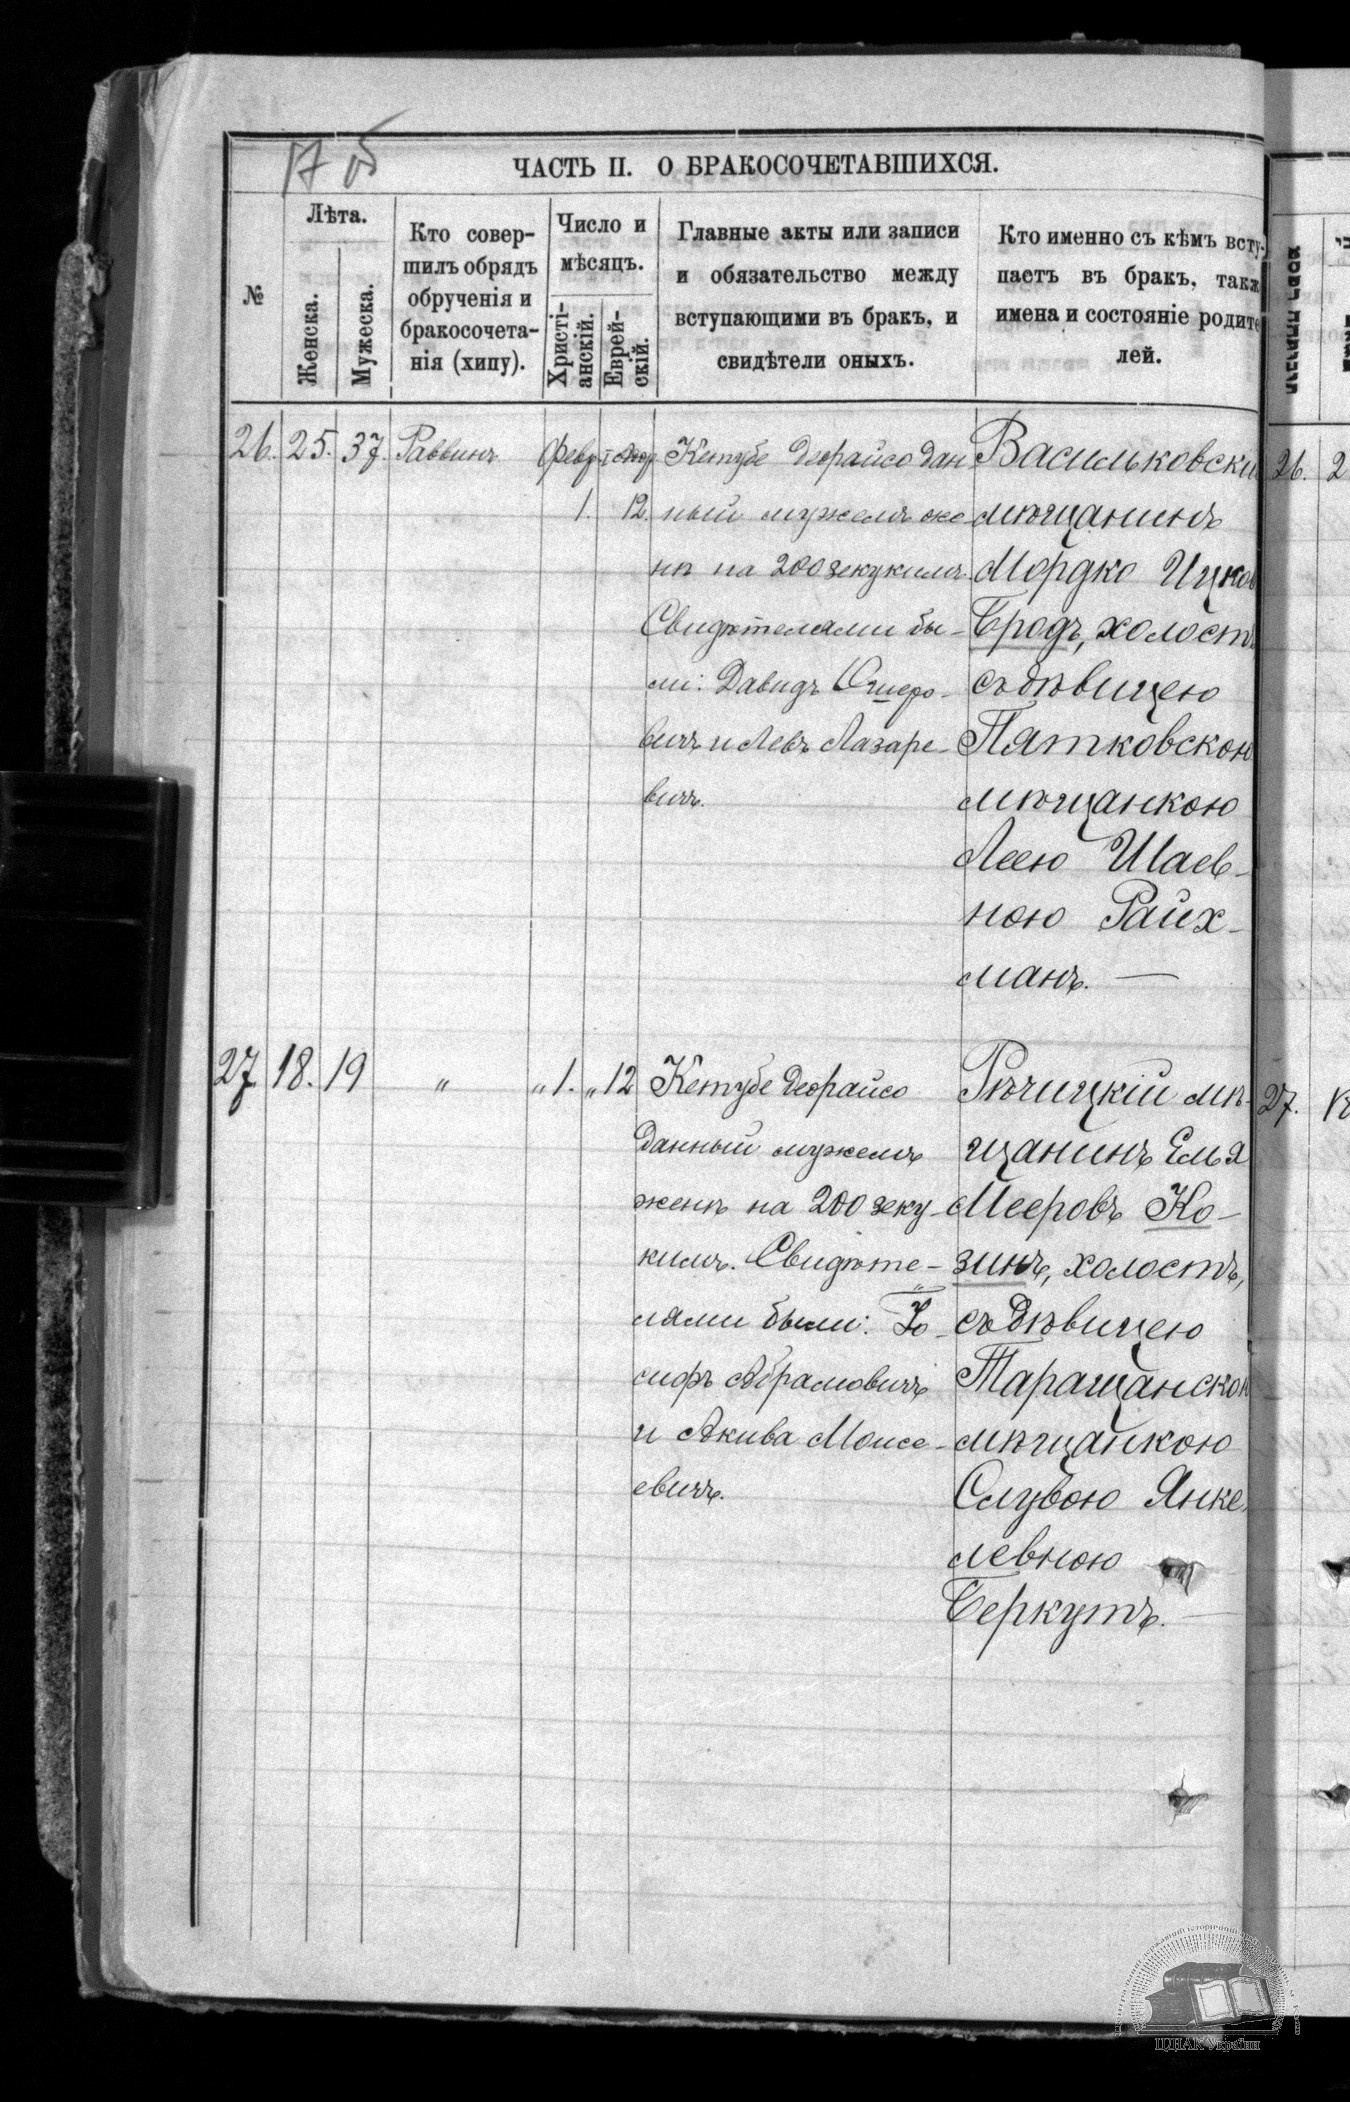 17 об
ЧАСТЬ II. О БРАКОСОЧЕТАВШИХСЯ.
№
Лѣта.
Женска.
Мужеска.
Кто совер-
шилъ обрядъ
обрученія и
бракосочета-
нія (хипу).
Число и
мѣсяцъ.
Христі-
анскій.
Еврей-
скій.
Главные акты или записи
и обязательство между
вступающими въ бракъ, и
свидѣтели оныхъ.
Кто именно съ кѣмъ всту-
паетъ въ бракъ, такж
имена и состояніе родите
лей.
26. 25. 37. Раввинъ Февр. 1. 12.
Кетубе деорайсо дан
ный мужемъ же-
нѣ на 200 зекукимъ.
Свидѣтелями бы-
ли: Давидъ Ошеро-
вичъ и Левъ Лазаре-
вичъ.
Васильковскій
мѣщанинъ
Мордко Ицков
Бродъ, холостъ
съ дѣвицею
Пятковскою
мѣщанкою
Леею Шаев-
ною Райх-
манъ. —
27 18. 19 " " 1. " 12
Кетубе деорайсо
данный мужемъ
женѣ на 200 зеку-
кимъ. Свидѣте-
лями были: Іо-
сифъ Абрамовичъ
и Акива Моисе-
евичъ.
Рѣчицкій мѣ-
щанинъ Елья
Мееровъ Ко-
зинъ, холостъ,
съ дѣвицею
Таращанскою
мѣщанкою
Слувою Янке-
левною
Беркутъ. —
26. 2
27. 18
ЦДІАК України